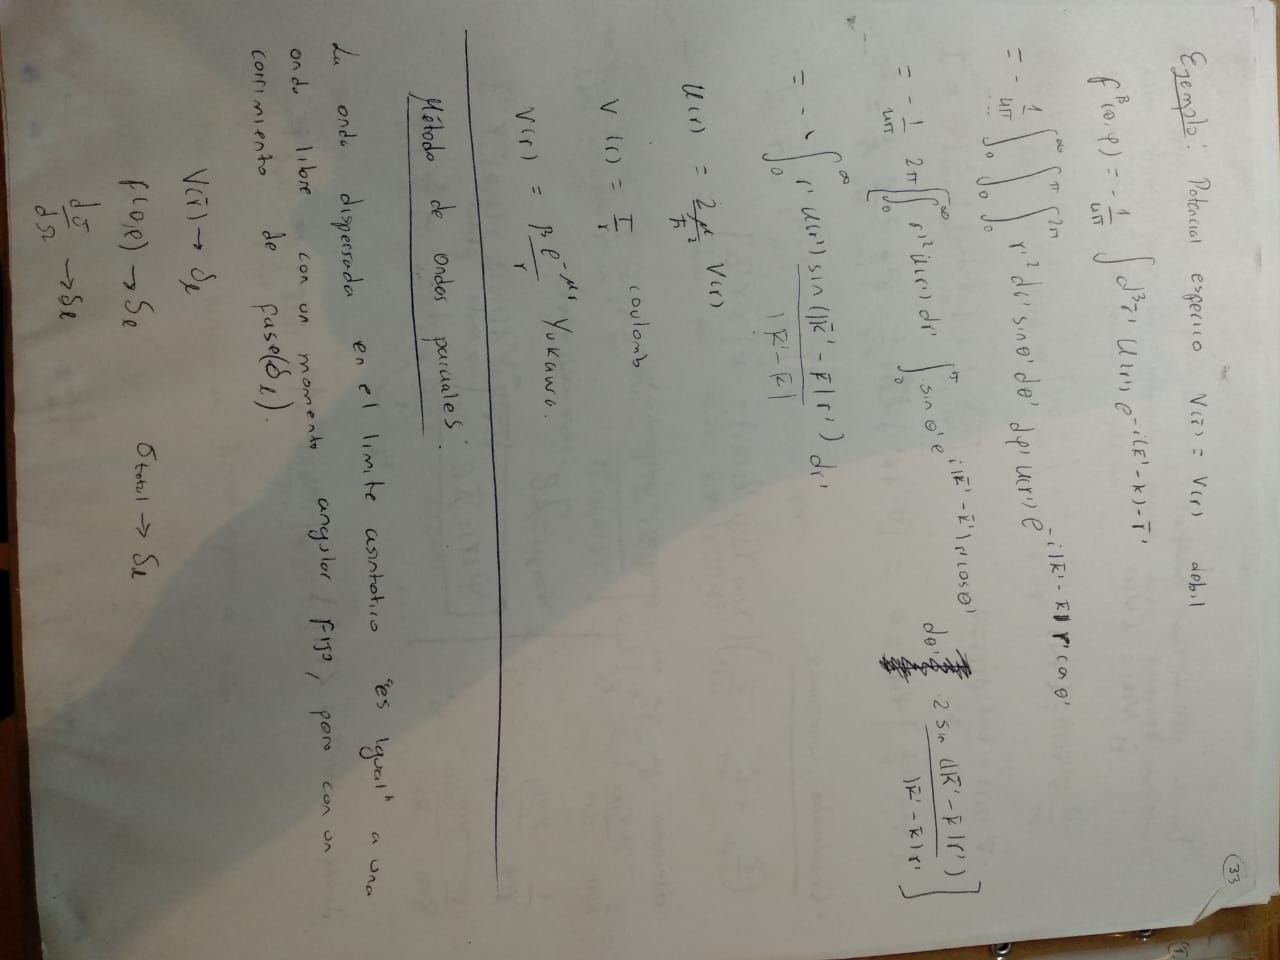 33
Ejemplo: Potencial esferico V(r̄) = V(r) debil
f^B(θ,φ) = - 1/4π ∫ d³r̄' U(r') e^{-i(k̄'-k)-r̄'}
= - 1/4π ∫₀^∞ ∫₀^π ∫₀^{2π} r'² dr' sinθ' dθ' dφ' U(r') e^{-i|k̄'-k̄|r' cos θ'}
= - 1/4π 2π [∫₀^∞ r'² U(r') dr' ∫₀^π sin θ' e^{i|k̄'-k̄'|r' cos θ'} dθ' 2 sin(|k̄'-k̄|r')/|k̄'-k̄|r' ]
= - ∫₀^∞ r' U(r') sin(|k̄'-k̄|r')/|k̄'-k̄| dr'
U(r) = 2μ/ħ² V(r)
V(r) = 1/r coulomb
V(r) = β e^{-μr}/r Yukawa.
Método de ondas parciales:
La onda dispersada en el limite asintotico "es igual" a una
onda libre con un momento angular l fijo, pero con un
corrimiento de fase(δ_l).
V(r̄) → δ_l
f(θ,φ) → δ_l σ_total → δ_l
dσ/dΩ → δ_l